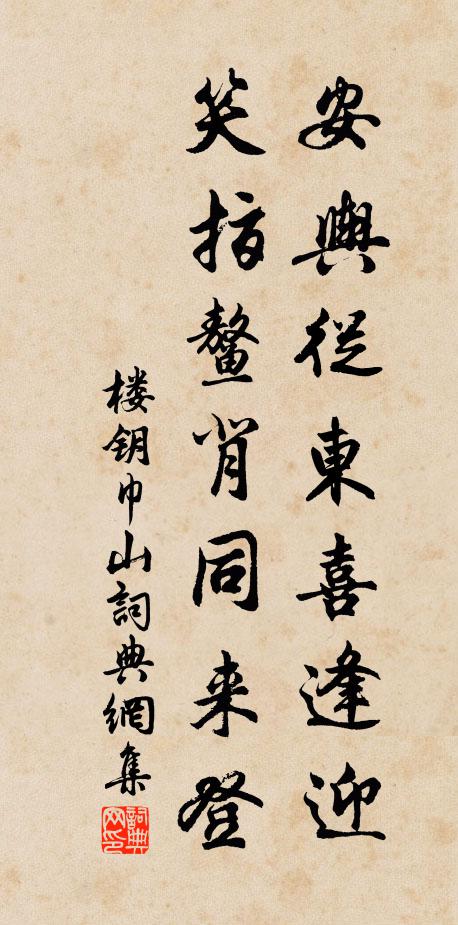 安輿從東喜逢迎
笑指鰲背同来登
楼钥巾山詞典網集
詞典网印